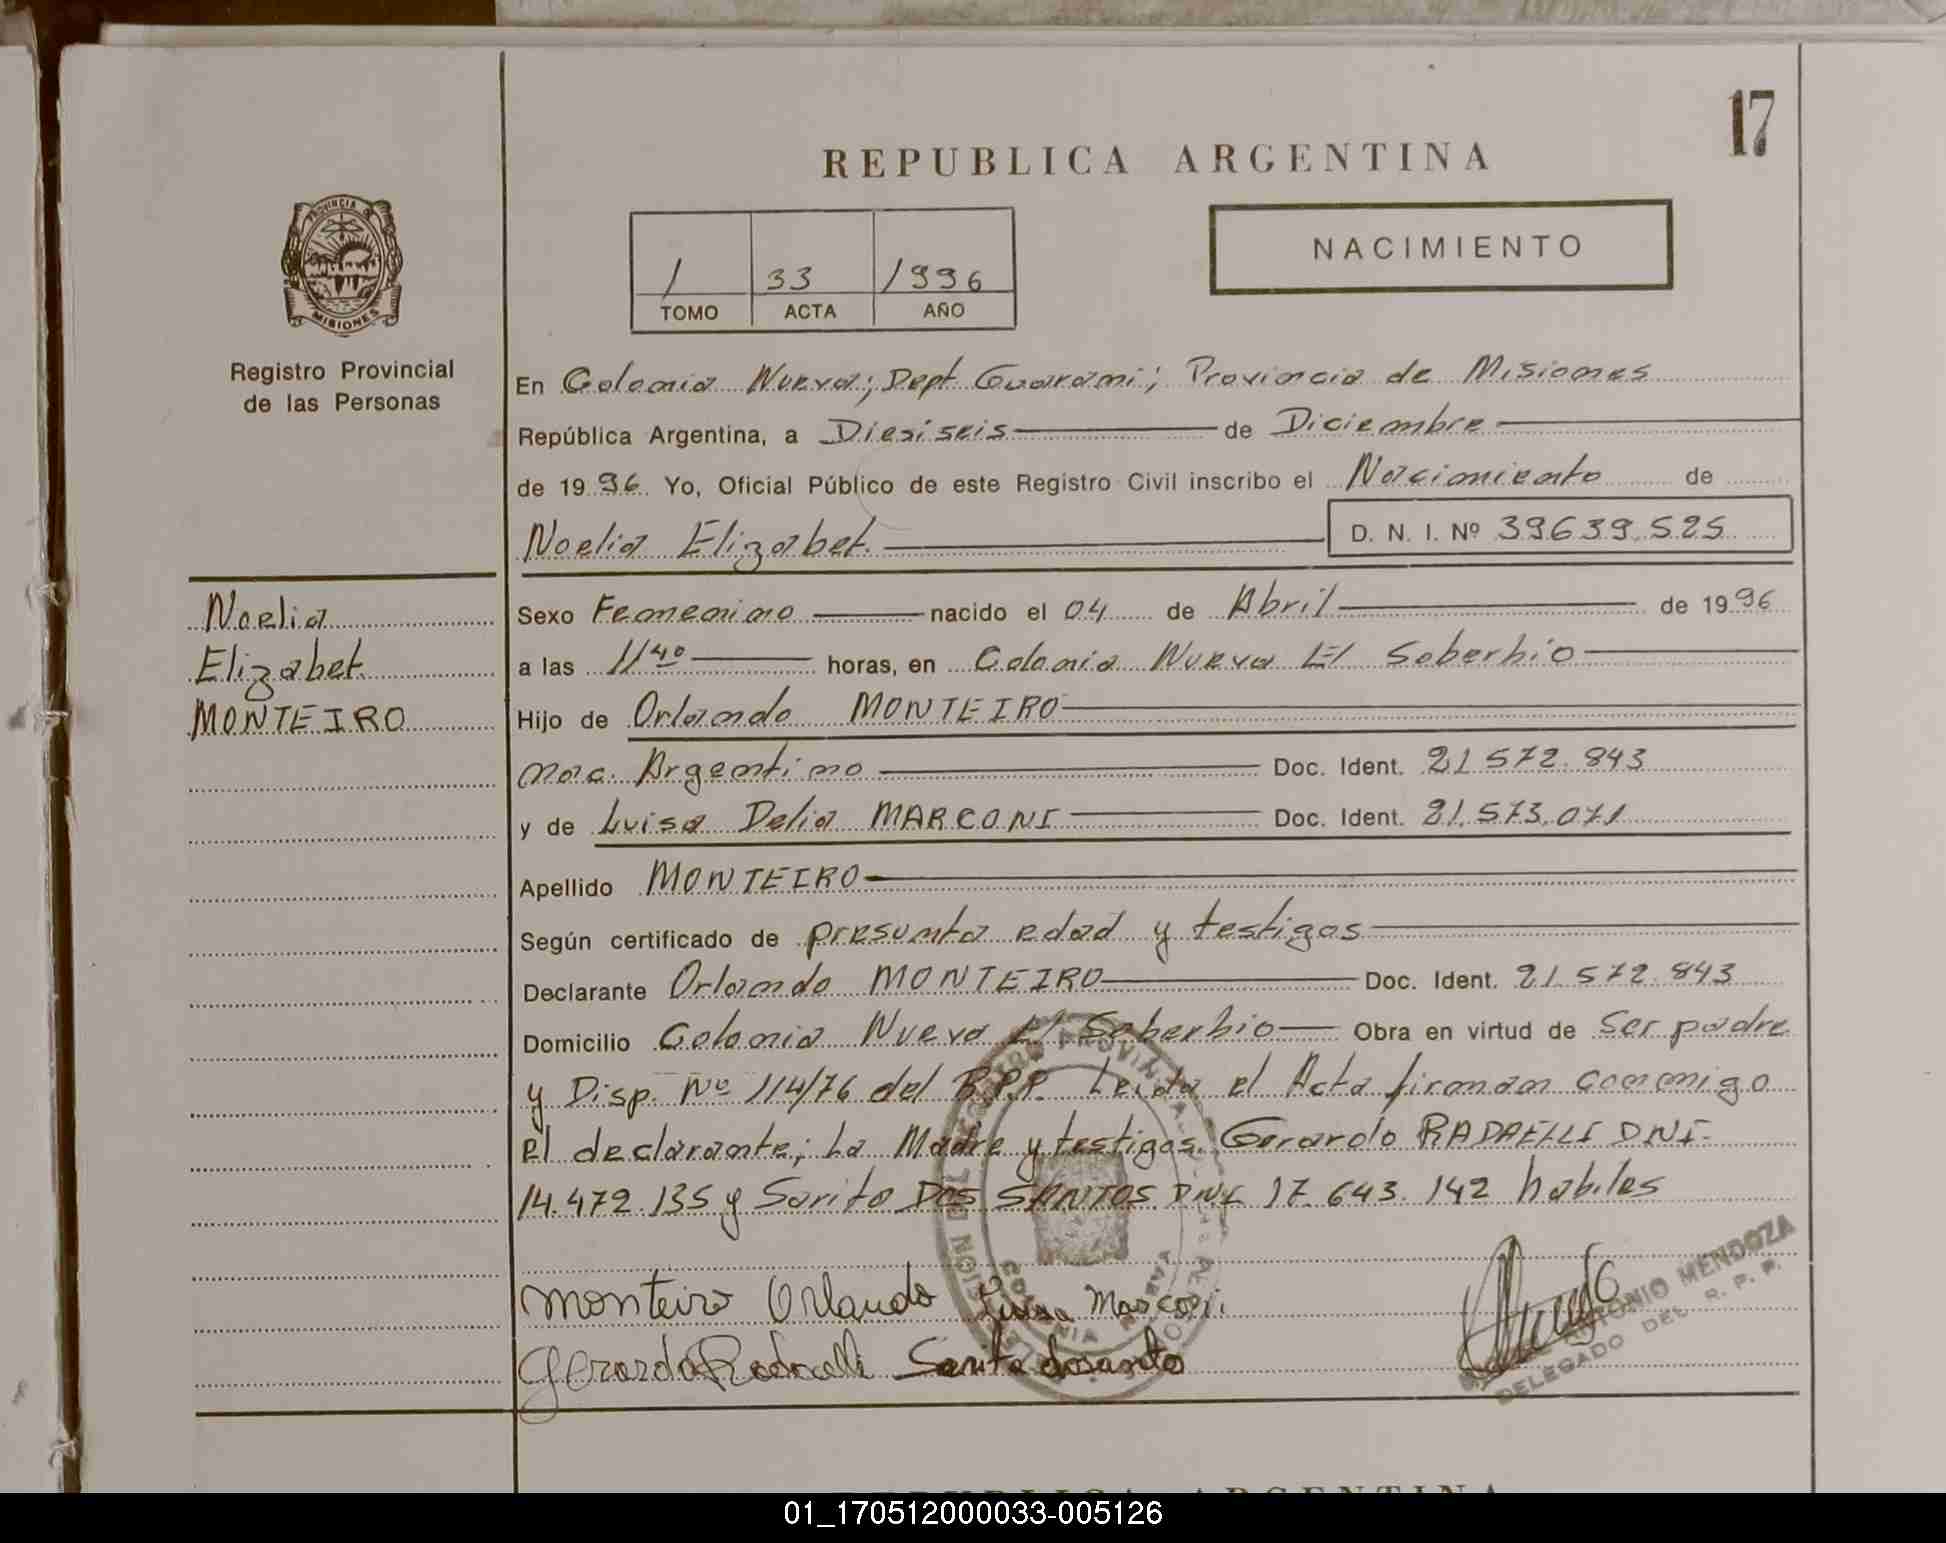 17
REPUBLICA ARGENTINA
PROVINCIA DE
MISIONES
NACIMIENTO
1 33 1996
TOMO ACTA AÑO
Registro Provincial
de las Personas
En Colonia Nueva; Dept. Guarani; Provincia de Misiones
República Argentina, a Diesiseis de Diciembre
de 1996. Yo, Oficial Público de este Registro Civil inscribo el Nacimiento de
Noelia Elizabet. D. N. I. Nº 39639.525
Noelia
Elizabet
MONTEIRO
Sexo Femenino nacido el 04 de Abril de 1996
a las 11 40 horas, en Colonia Nueva El Soberbio
Hijo de Orlando MONTEIRO
nac. Argentino Doc. Ident. 21.572.843
y de Luisa Delia MARCONI Doc. Ident. 21.573.071
Apellido MONTEIRO
Según certificado de presunta edad y testigos
Declarante Orlando MONTEIRO Doc. Ident. 21.572.843
Domicilio Colonia Nueva El Soberbio Obra en virtud de Ser padre
y Disp. Nº 114/76 del R.P.P. Leida el Acta firman conmigo
el declarante; La Madre y testigos. Gerardo RADAELLI DNI.
14.472.135 y Sarito DOS SANTOS DNI 17.643.142 habiles
monteiro Orlando Luisa Marconi
Gerardo Radaelli
ANTONIO MENDOZA
DELEGADO DEL R. P. P.
REPUBLICA ARGENTINA
01_170512000033-005126